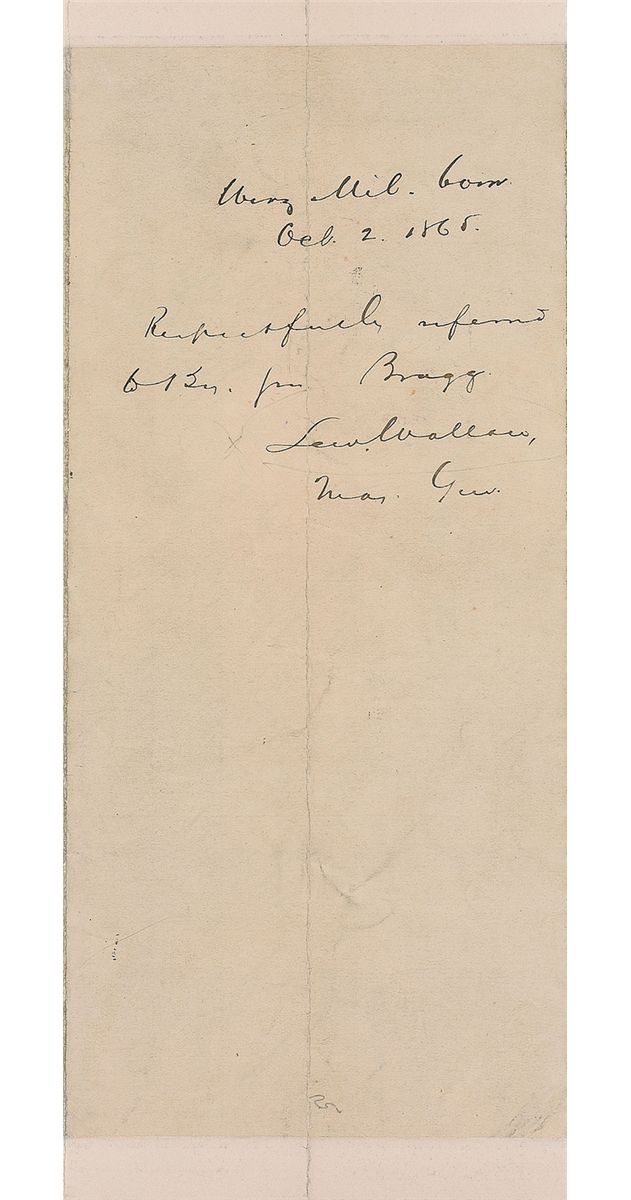 Wirz Mil. Com.
Oct. 2. 1865.
Respectfully referred
to Br. Gen Bragg.
Lew. Wallace,
Maj. Gen.